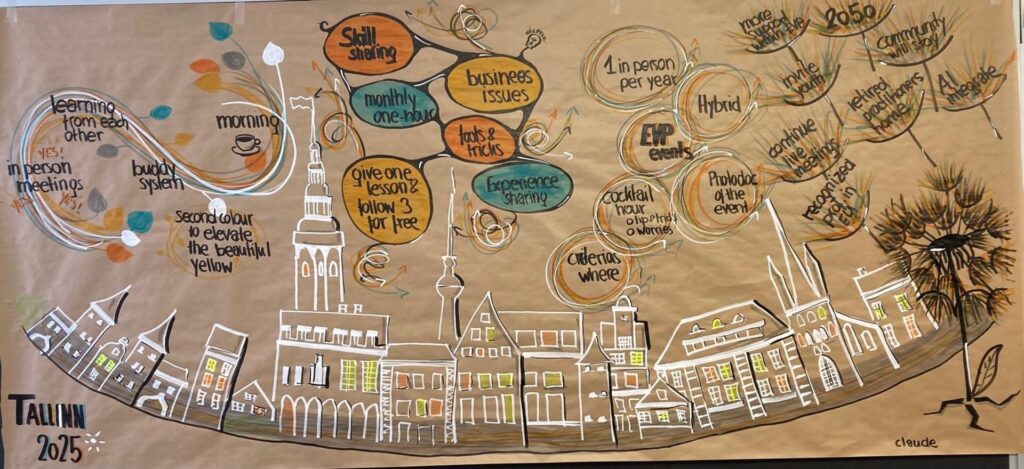 learning
from each
other
in person
meetings
YES!
YES!
YES!
buddy
system
morning
second colour
to elevate
the beautiful
yellow
Skill
sharing
business
issues
monthly
one-hour
tools &
tricks
give one
lesson &
follow 3
for free
Experience
sharing
1 in person
per year
Hybrid
EVP
events
Photodoc
of the
event
Cocktail
hour
worries
criterias
where
more
support
within EVP
2050
community
will stay
invite
youth
retired
practitioners
home
AI
integrate
continue
live
meetings
recognized
prof. in
TALLINN
2025
claude